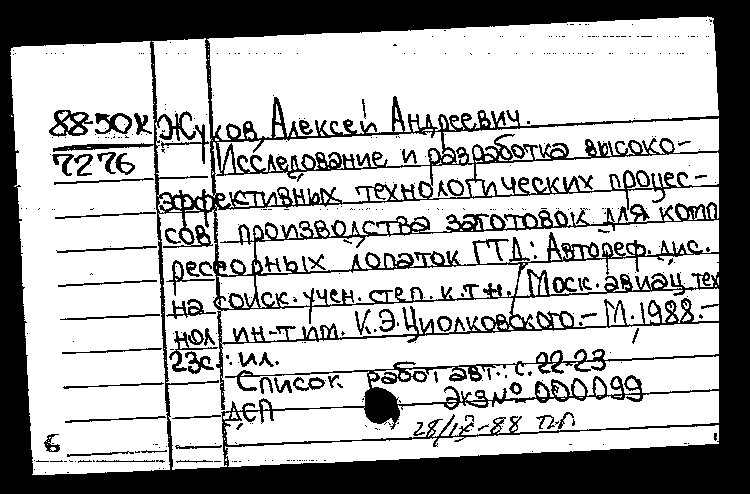 88-50К Жуков, Алексей Андреевич.
7276 Исследование и разработка высоко-
эффективных технологических процес-
сов производства заготовок для комп
рессорных лопаток ГТД: Автореф. дис.
на соиск. учен. степ. к.т.н. / Моск. авиац. тех
нол ин-т им. К.Э.Циолковского. - М., 1988. -
23с.: ил.
Список работ авт.: с. 22-23
ДСП Экз № 000099
28/IX-88
6